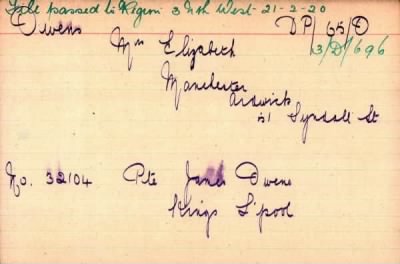 File passed to Regim 3 Nth West 21-2-20
Owens DP/65/O
Mrs Elizabeth 3/D/696
Manchester
Ardwick
21 Syndall St
No. 32104 Pte James Owens
Kings L'pool